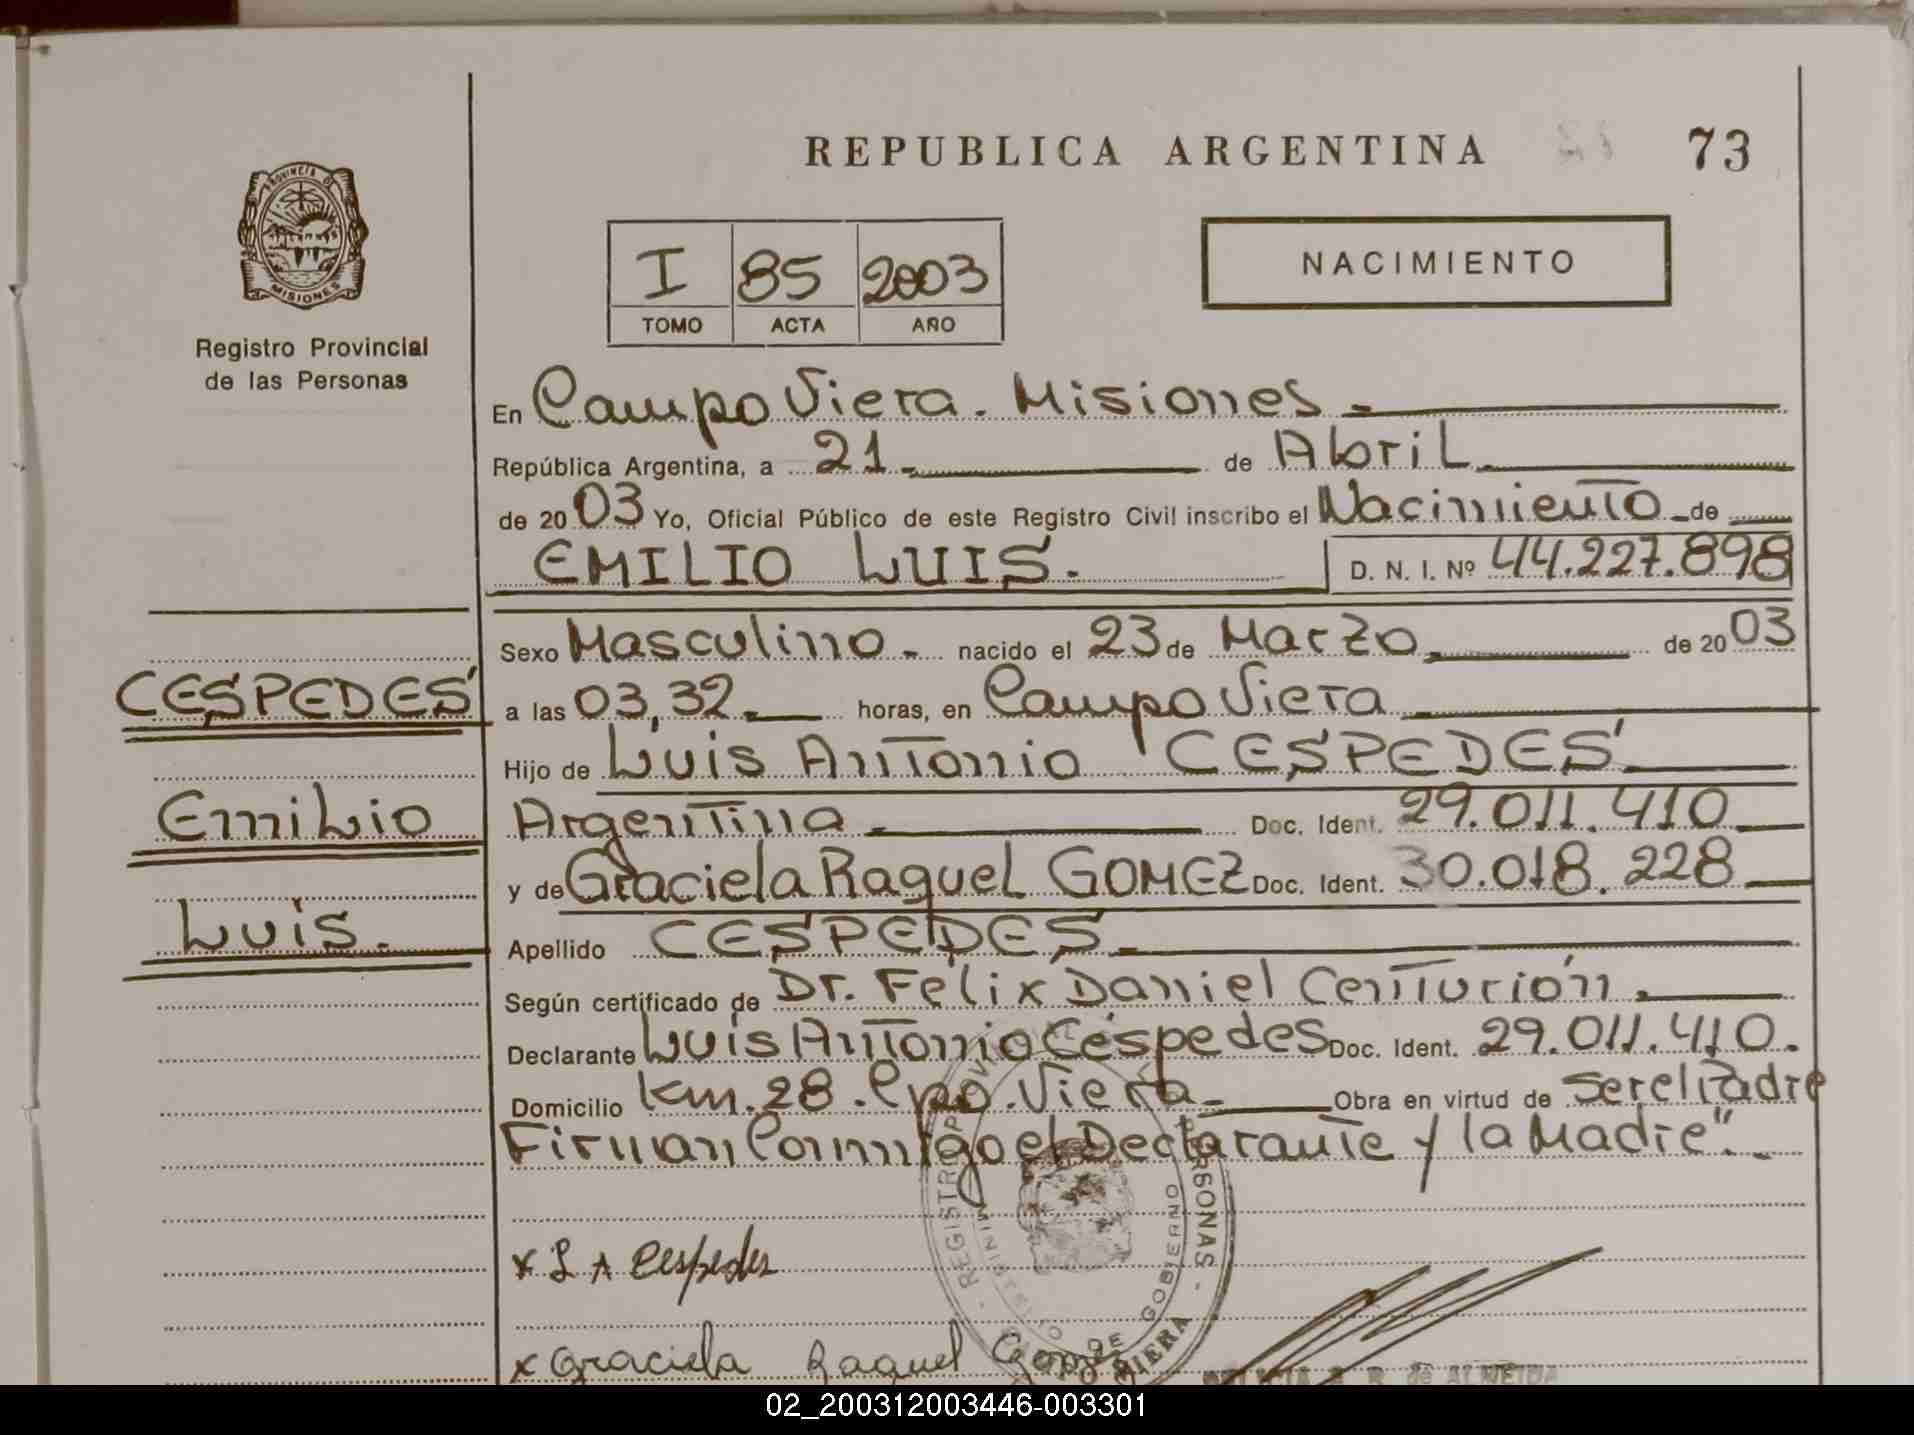 REPUBLICA ARGENTINA 73
PROVINCIA DE
MISIONES
Registro Provincial
de las Personas
I 85 2003
TOMO ACTA AÑO
NACIMIENTO
En Campo Viera. Misiones
República Argentina, a 21 de Abril
de 2003 Yo, Oficial Público de este Registro Civil inscribo el Nacimiento de
EMILIO LUIS. D. N. I. Nº 44.227.898
Sexo Masculino nacido el 23 de Marzo de 2003
CESPEDES
a las 03,32 horas, en Campo Viera
Hijo de Luis Antonio CESPEDES
Emilio
Argentina Doc. Ident. 29.011.410
y de Graciela Raquel GOMEZ Doc. Ident. 30.018.228
Luis.
Apellido CESPEDES
Según certificado de Dr. Félix Daniel Centurión
Declarante Luis Antonio Céspedes Doc. Ident. 29.011.410.
Domicilio Km. 28. Cpo. Viera Obra en virtud de ser el Padre
Firman Conmigo el Declarante y la Madre".
x L A Cespedes
x Graciela Raquel Gomez
REGISTRO PERSONAS
DE GOBIERNO
VIERA
R. de ALMEIDA
02_200312003446-003301